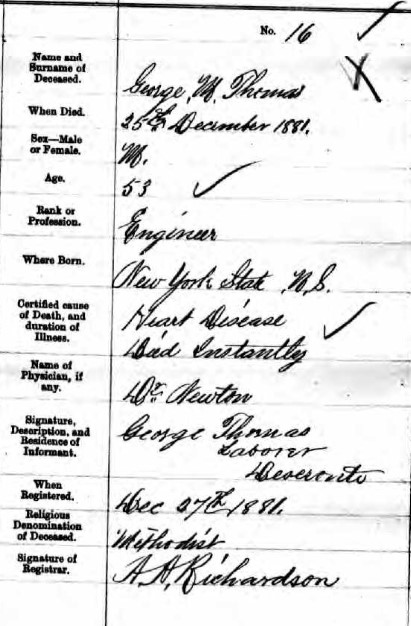 No. 16
Name and
Surname of
Deceased.
George, M. Thomas
When Died.
25th December 1881.
Sex—Male
or Female.
M.
Age.
53
Rank or
Profession.
Engineer
Where Born.
New York State, U.S.
Certified cause
of Death, and
duration of
Illness.
Heart Disease
Died Instantly
Name of
Physician, if
any.
Dr. Newton
Signature,
Description, and
Residence of
Informant.
George Thomas
Laborer
Deseronto
When
Registered.
Dec 27th 1881.
Religious
Denomination
of Deceased.
Methodist
Signature of
Registrar.
A. A. Richardson